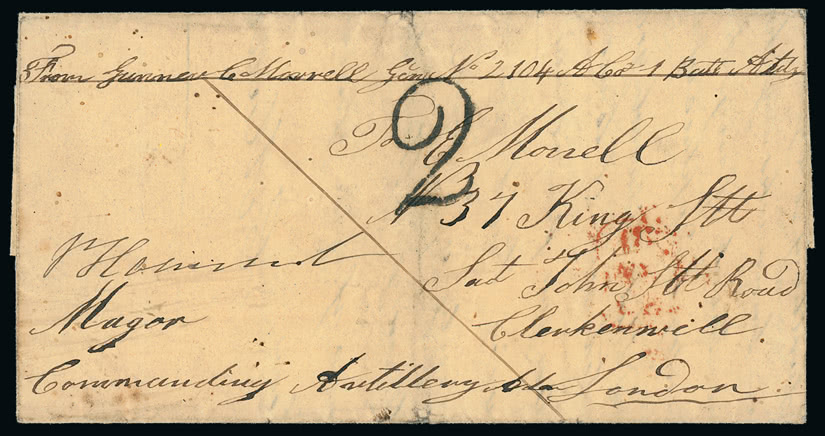 From Gunner C Morrell Gen No 2104 A Coy 1 Batt Artly
2
To E Morrell
No 37 King Stt
Sat John Stt Road
Clerkenwill
London
Magor
Commanding Artillery